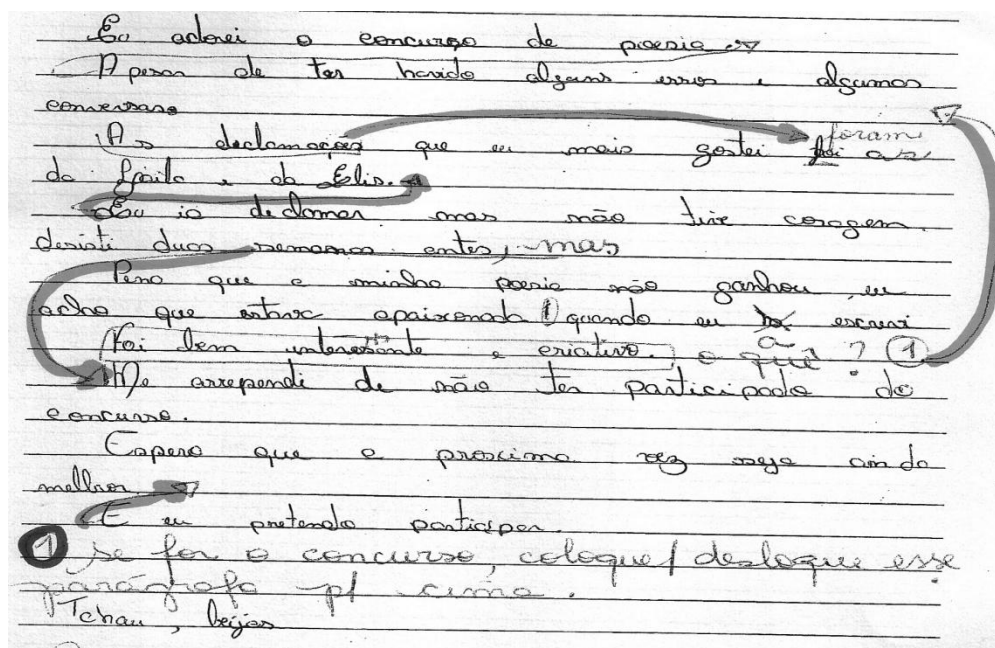 Eu adorei o concurso de poesia.
Apesar de ter havido alguns erros e algumas
conversas
foram
As declamações que eu mais gostei foi as
da e da Elis.
Eu ia declamar mas não tive coragem
desisti duas semanas antes, mas
Pena que a minha poesia não ganhou, eu
acho que estava apaixonada quando eu escrevi
Foi bem interessante e criativo. o quê? 1
Me arrependi de não ter participado do
concurso.
Espero que a proscima vez seja ainda
melhor
E eu pretendo participar.
1 se for o concurso, coloque/desloque esse
parágrafo p/ cima.
Tchau, beijos